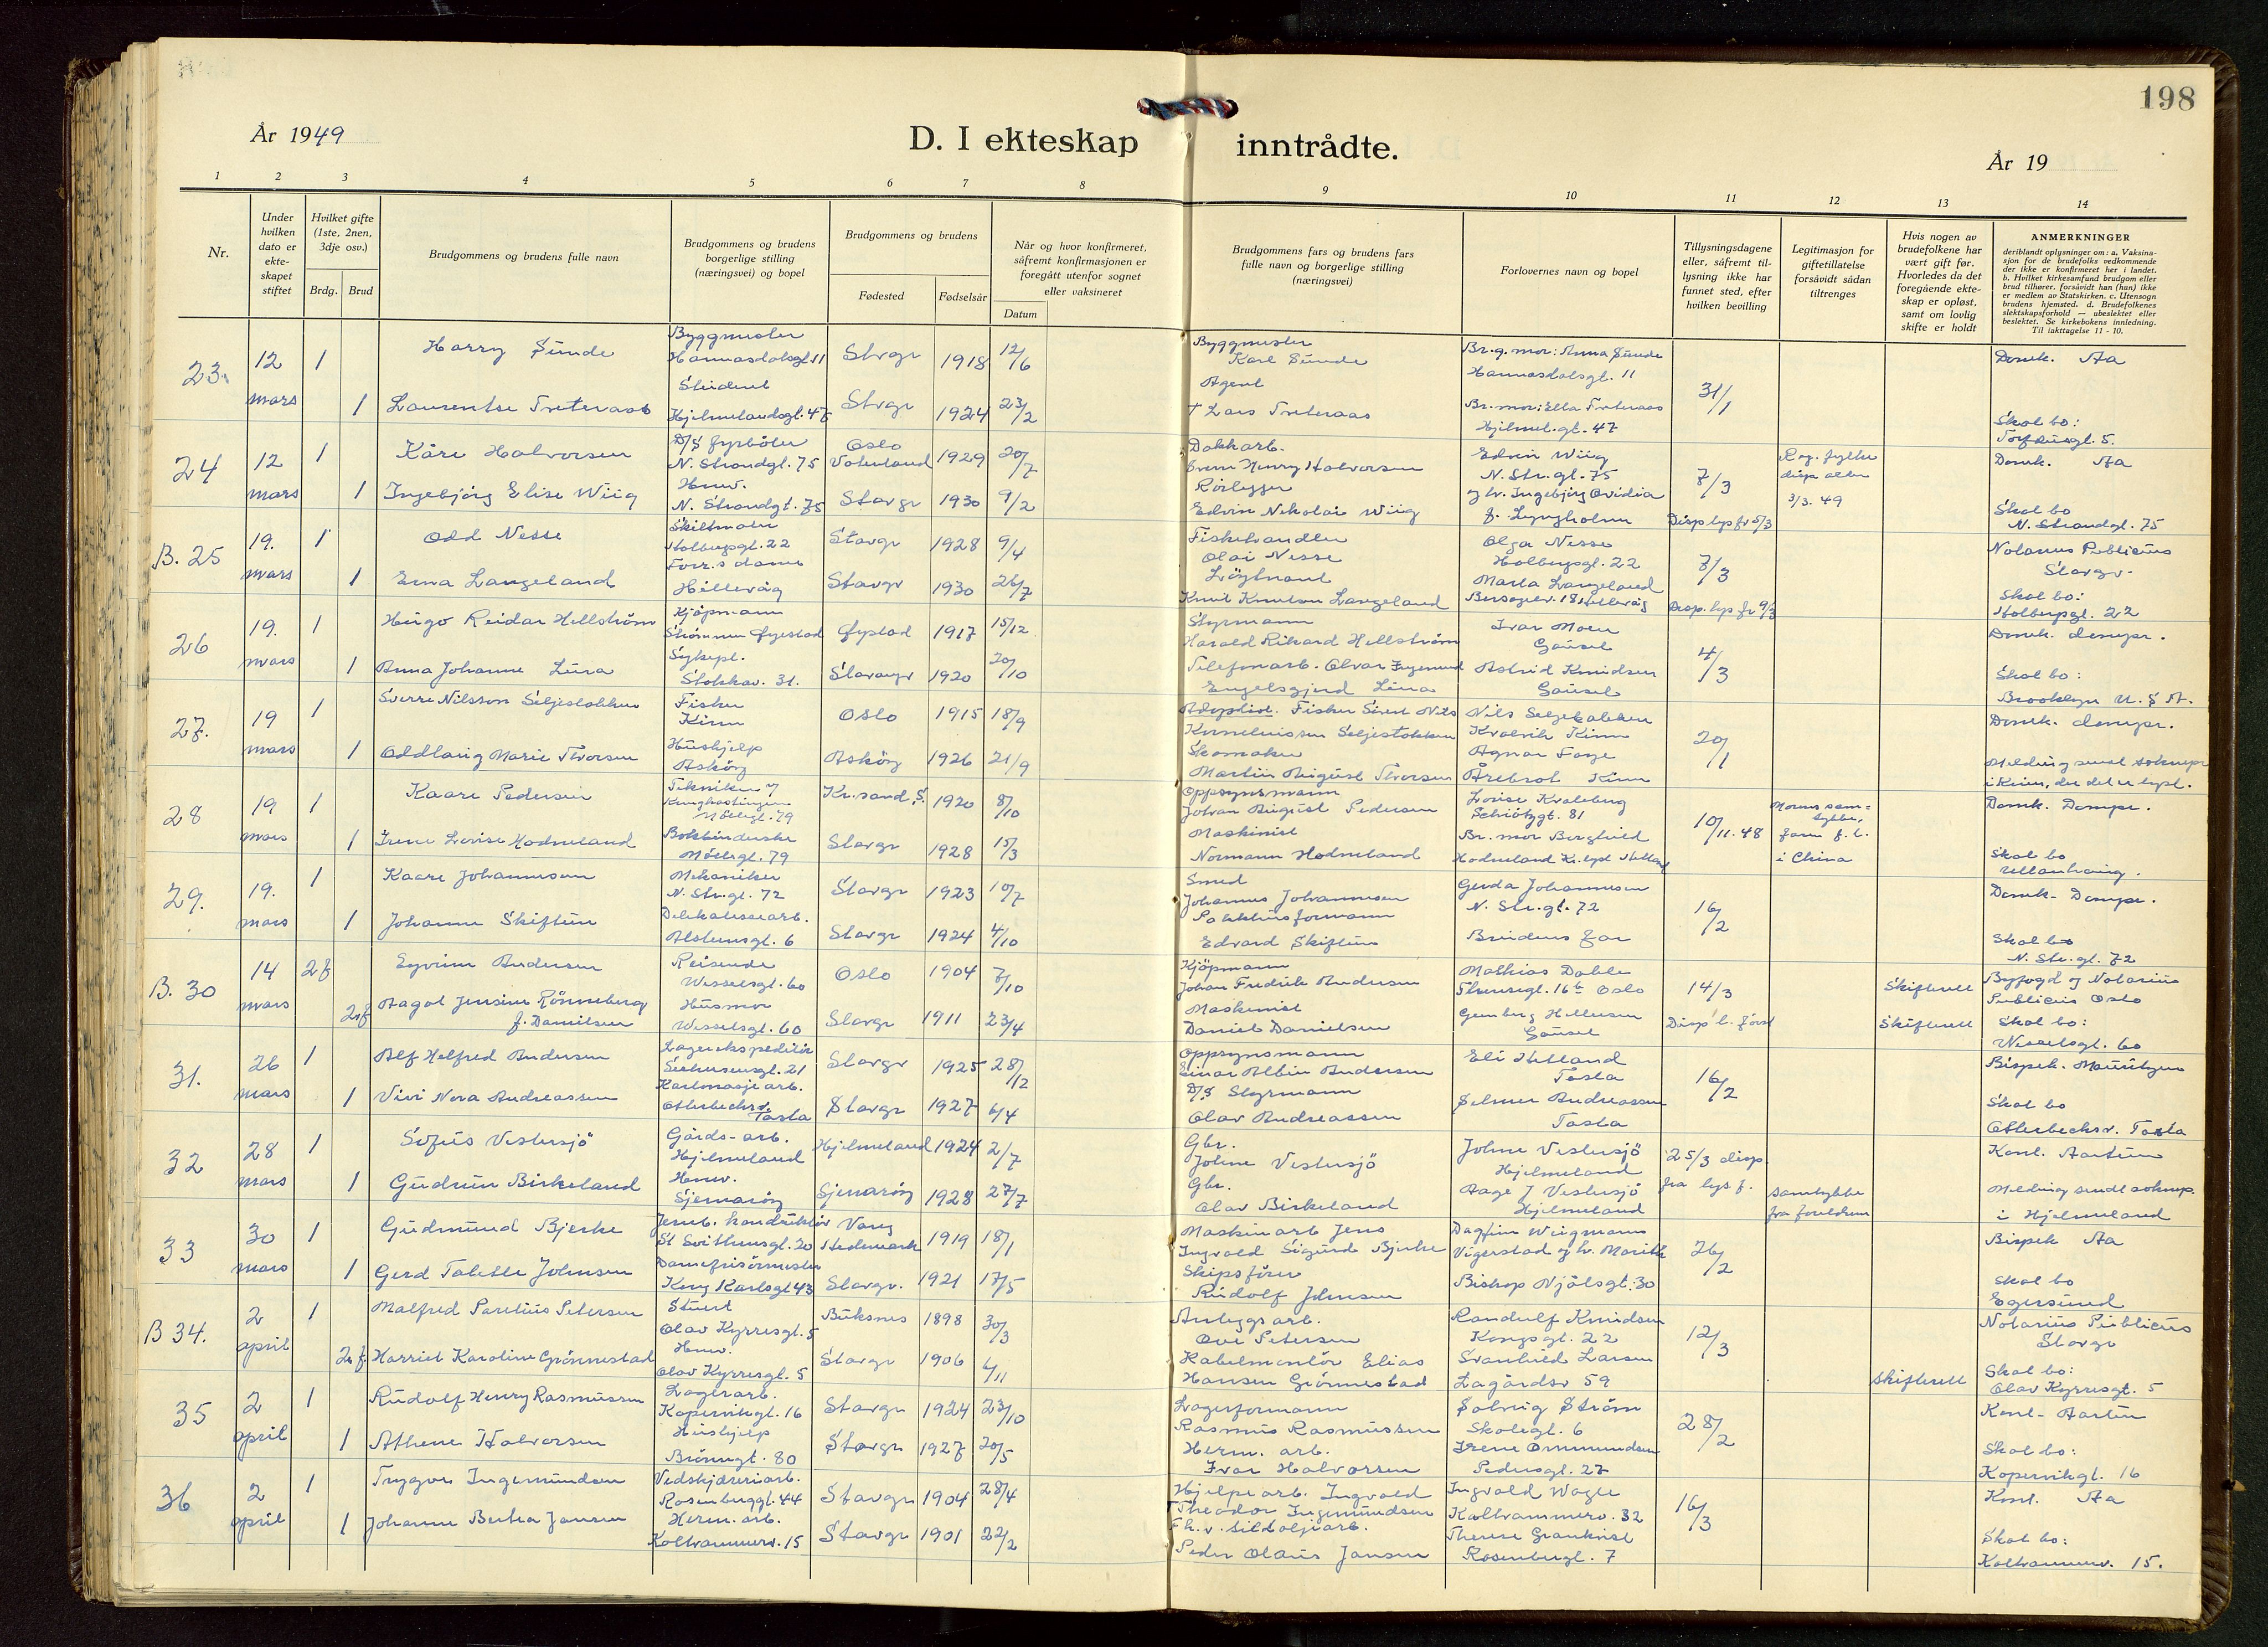 198
År 1949
D. I ekteskap inntrådte.
År 19
1 2 3 4 5 6 7 8 9 10 11 12 13 14
Nr.
Under hvilken dato er ekte-skapet stiftet
Hvilket gifte (1ste, 2nen, 3dje osv.)
Brdg. Brud
Brudgommens og brudens fulle navn
Brudgommens og brudens borgerlige stilling (næringsvei) og bopel
Brudgommens og brudens
Fødested Fødselsår
Når og hvor konfirmeret, såfremt konfirmasjonen er foregått utenfor sognet eller vaksineret
Datum
Brudgommens fars og brudens fars fulle navn og borgerlige stilling (næringsvei)
Forlovernes navn og bopel
Tillysningsdagene eller, såfremt til-lysning ikke har funnet sted, efter hvilken bevilling
Legitimasjon for giftetillatelse forsåvidt sådan tiltrenges
Hvis nogen av brudefolkene har vært gift før. Hvorledes da det foregående ekte-skap er opløst, samt om lovlig skifte er holdt
ANMERKNINGER
deriblandt oplysninger om: a. Vaksina-sjon for de brudefolks vedkommende der ikke er konfirmeret her i landet. b. Hvilket kirkesamfund brudgom eller brud tilhører, forsåvidt han (hun) ikke er medlem av Statskirken. c. Utensogn brudens hjemsted. d. Brudefolkenes slektskapsforhold — ubeslektet eller beslektet. Se kirkebokens innledning. Til iakttagelse 11 - 10.
23. 12 mars 1 Harry Sunde Byggmester Hannasdalsgt 11 Stvgr 1918 12/6 Byggmester Karl Sunde Br.g.mor: Anna Sunde Hannasdalsgt. 11 31/1 Domk. Aa
1 Laurentse Treteraas Student Hjelmelandsgt. 47 Stvgr 1924 23/2 Agent † Lars Treteraas Br. mor: Ella Treteraas Hjelmel.gt. 47 Skal bo: Torfæusgt. 5.
24 12 mars 1 Kåre Halvorsen D/S fyrbøter N. Strandgt. 75 Oslo Vaterland 1929 20/7 Dokkarb. Henry Halvorsen Edvin Wiig N. Str.gt. 75 7/3 3/3. 49 Domk. Aa
1 Ingebjørg Elise Wiig Hmv. N. Strandgt. 75 Stavgr 1930 9/2 Rørlegger Edvin Nikolai Wiig og hr. Ingebjørg Ovidia f. Lyngholm Disp lys fr 5/3 Skal bo N. Strandgt. 75
B. 25 19. mars 1 Odd Nesse Skiltmaler Holbergsgt. 22 Stavgr 1928 9/4 Fiskehandler Olai Nesse Olga Nesse Holbergsgt. 22 7/3 Notarius Publicus Stavgr.
1 Erna Langeland Forr.s dame Hillevåg Stavgr 1930 26/7 Løytnant Knut Knutson Langeland Marta Langeland Hillevåg Disp. lys fr 9/3 Skal bo: Holbergsgt. 22
26 19. mars 1 Hugo Reidar Hellström Kjøpmann Strømmen Øyestad Øystad 1917 15/12 Styrmann Harald Rikard Hellström Ivar Moen Gausel 4/3 Domk. dompr.
1 Anna Johanne Lura Sykepl. Stokkav. 31. Stavangr 1920 20/10 Telefonarb. Olvar Ingemund Engelsgjerd Lura Astrid Knudsen Gausel Skal bo: Brooklyn U.S.A.
27. 19 mars 1 Sverre Nilsson Seljestokken Fisker Kinn Oslo 1915 18/9 Adoptivf. Fisker Nils Korneliussen Seljestokken Nils Seljestokken Kvalvik Kinn 20/1 Domk. dompr.
1 Oddlaug Marie Thorsen Hushjelp Askøy Askøy 1926 21/9 Skomaker Martin August Thorsen Agnar Farge Årebrot Kinn Melding sendt soknepr i Kinn, der det er lyst.
28 19 mars 1 Kaare Pedersen Tekniker Møllegt. 79 Kr.sand S. 1920 8/10 Oppsynsmann Johan August Pedersen Lovise Kvaleberg Schiøtzgt. 81 10/11. 48 i China Domk. Dompr.
1 Irene Lovise Hodneland Bokbinderske Møllegt. 79 Stavgr 1928 15/3 Maskinist Normann Hodneland Br. mor Borghild Hodneland Skal bo Ullanhaug.
29. 19. mars 1 Kaare Johannesen Mekaniker N. Str.gt. 72 Stavgr 1923 10/7 Smed Johannes Johannesen Gerda Johannesen N. Str.gt. 72 16/2 Domk. Dompr.
1 Johanne Skiftun Delikatessearb. Alstensgt. 6 Stavgr 1924 4/10 Pakkhusformann Edvard Skiftun Brudens far Skal bo N. Str.gt. 72
B. 30 14 mars 2 f Eyvinn Andersen Reisende Wesselsgt. 60 Oslo 1904 7/10 Kjøpmann Johan Fredrik Andersen Mathias Dahle Oslo 14/3 Skifterett Byfogd og Notarius Publicus Oslo
2 f Aagot Jensine Rønneberg f. Danielsen Husmor Wesselsgt. 60 Stavgr 1911 23/4 Maskinist Daniel Danielsen Hellesen Gausel Skifterett Skal bo: Wesselsgt. 60
31. 26 mars 1 Alf Helfred Andersen Lagerekspeditør Seehusensgt. 21 Stavgr 1925 28/12 Oppsynsmann Einar Albin Andersen Eli Helland Tasta 16/2 Bispek. Mauritzen
1 Vivi Nora Andreassen Kartonasjearb. Otterbechsv. Tasta Stavgr 1927 6/4 D/S Styrmann Olav Andreassen Selmer Andreassen Tasta Skal bo Otterbechsv. Tasta
32 28 mars 1 Sofus Vestersjø Gårds-arb. Hjelmeland Hjelmeland 1924 2/7 Gbr. Johne Vestersjø Johne Vestersjø Hjelmeland 25/3 disp. fra lys. f. Konf. Aartun
1 Gudrun Birkeland Hmv. Sjernarøy Sjernarøy 1928 27/7 Gbr. Olav Birkeland Aage J Vestersjø Hjelmeland samtykke fra foreldrene Melding sendt soknepr. i Hjelmeland
33 30 mars 1 Gudmund Bjerke Jernb. konduktør St Svithunsgt. 20 Vang Hedemark 1919 18/1 Maskinarb Jens Ingvald Sigurd Bjerke Dagfinn Wiigmann Vigerstad og hr. Marith 26/2 Bispek Aa
1 Gerd Tabette Johnsen Damefrisørmester Kong Karlsgt 43 Stavgr. 1921 17/5 Skipsfører Rudolf Johnsen Bishop Njålsgt. 30 Skal bo Egersund
B 34. 2 april 1 Malfred Paretius Petersen Stuert Olav Kyrresgt. 5 Buksnes 1898 30/3 Anleggsarb. Ove Petersen Randulf Knudsen Kongsgt. 22 12/3 Notarius Publicus Stavgr
2 f. Harriet Karoline Grønnestad Hmv. Olav Kyrresgt. 5 Stavgr 1906 4/11 Kabelmontør Elias Hansen Grønnestad Svanhild Larsen Lagårdsv 59 Skifterett Skal bo: Olav Kyrresgt. 5
35 2 april 1 Rudolf Henry Rasmussen Lagerarb. Kopervikgt. 16 Stavgr 1924 23/10 Lagerformann Rasmus Rasmussen Solveig Strøm Skolegt. 6 28/2 Konf. Aartun
1 Athene Halvorsen Hushjelp Brønngt. 80 Stavgr 1927 20/5 Herm. arb. Ivar Halvorsen Irene Ommundsen Pedersgt. 27 Skal bo: Kopervikgt. 16
36 2 april 1 Trygve Ingemundsen Vedskjæreriarb. Rosenberggt. 44 Stavgr 1904 28/4 Hjelpearb. Ingvald Theodor Ingemundsen Ingvald Wagle Koltrammerv. 32 16/3 Konf. Aa
1 Johanne Berta Jansen Herm. arb. Koltrammerv. 15 Stavgr 1901 22/2 Fh. v. sildoljearb. Peder Olaus Jansen Therese Grankvist Rosenbergt. 7 Skal bo: Koltrammerv. 15.